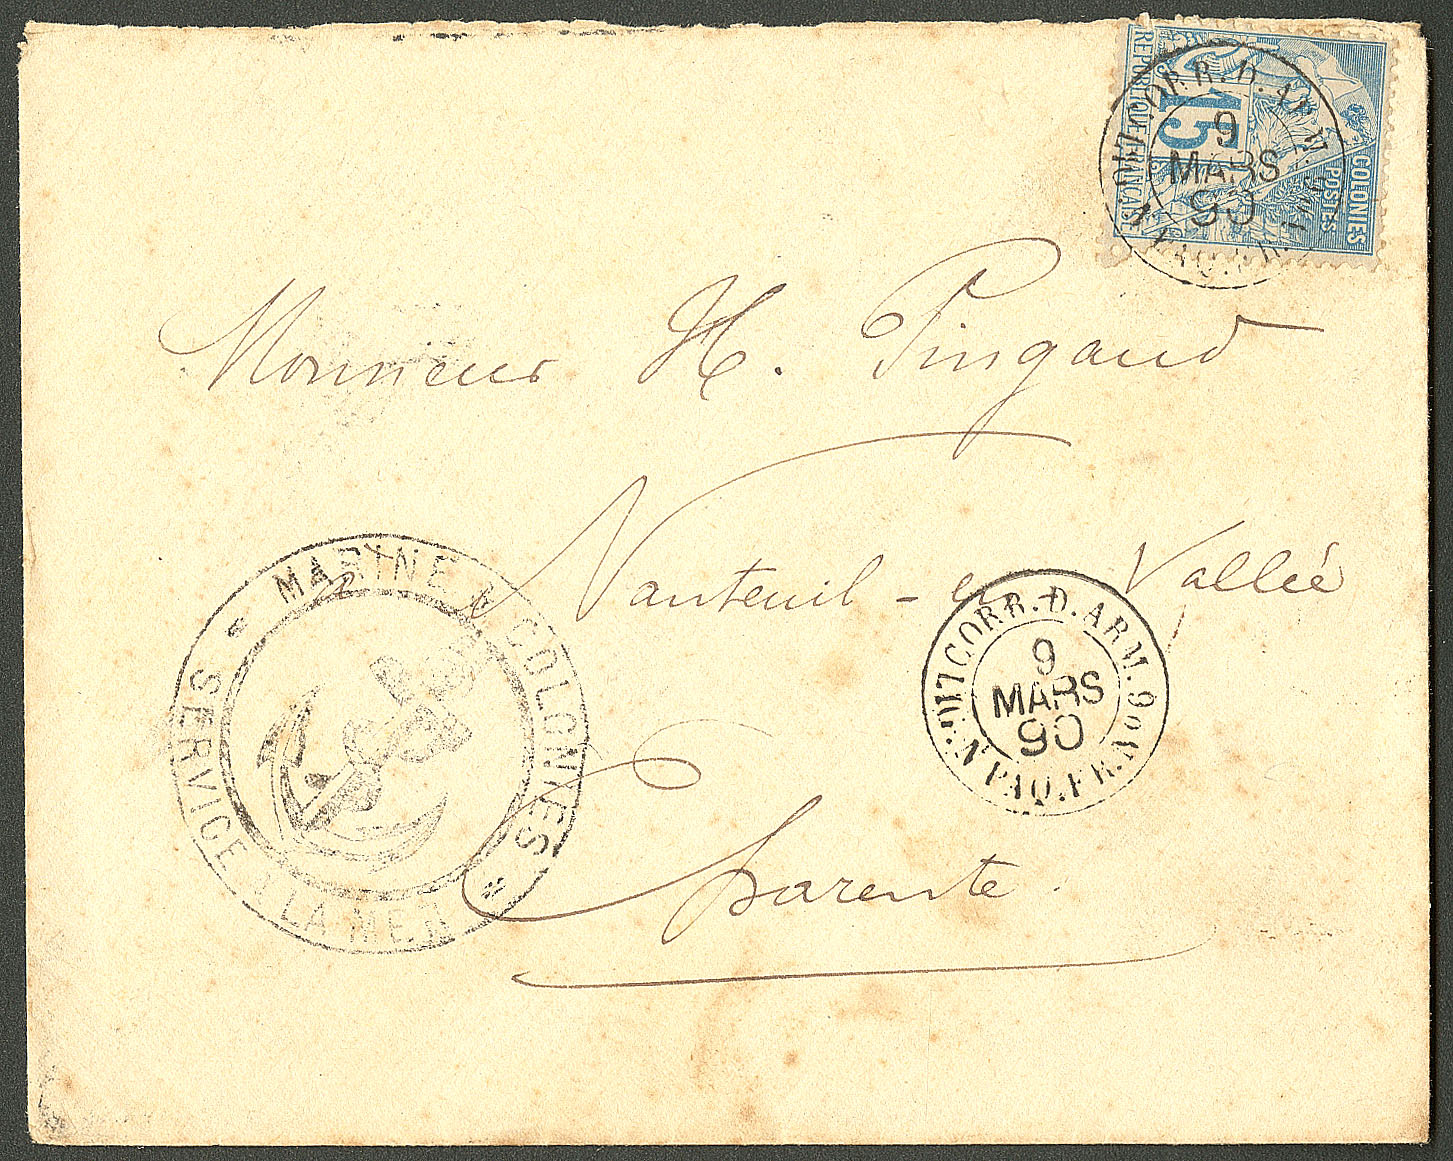 COLONIES
POSTES
15
RÉPUBLIQUE FRANÇAISE
CORR. D. ARM.
9
MARS
90
PAQ. FR.
Monsieur H. Pingaud
Nanteuil-en Vallée
Charente
MARINE COLONIES
SERVICE LA MER
CORR. D. ARM.
9
MARS
90
PAQ. FR. N